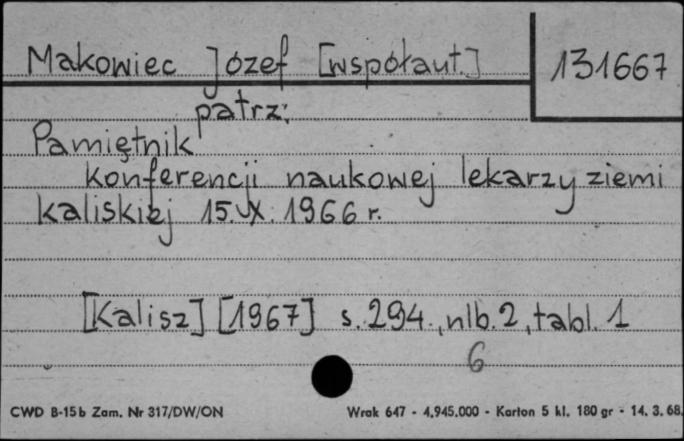 Makowiec Józef [współaut.] 131667
patrz:
Pamiętnik
konferencji naukowej lekarzy ziemi
kaliskiej 15.IX.1966 r.
[Kalisz] [1967] s.294., nlb.2, tabl. 1
6
CWD B-15b Zam. Nr 317/DW/ON Wrak 647 - 4.945.000 - Karton 5 kl. 180 gr - 14. 3. 68.